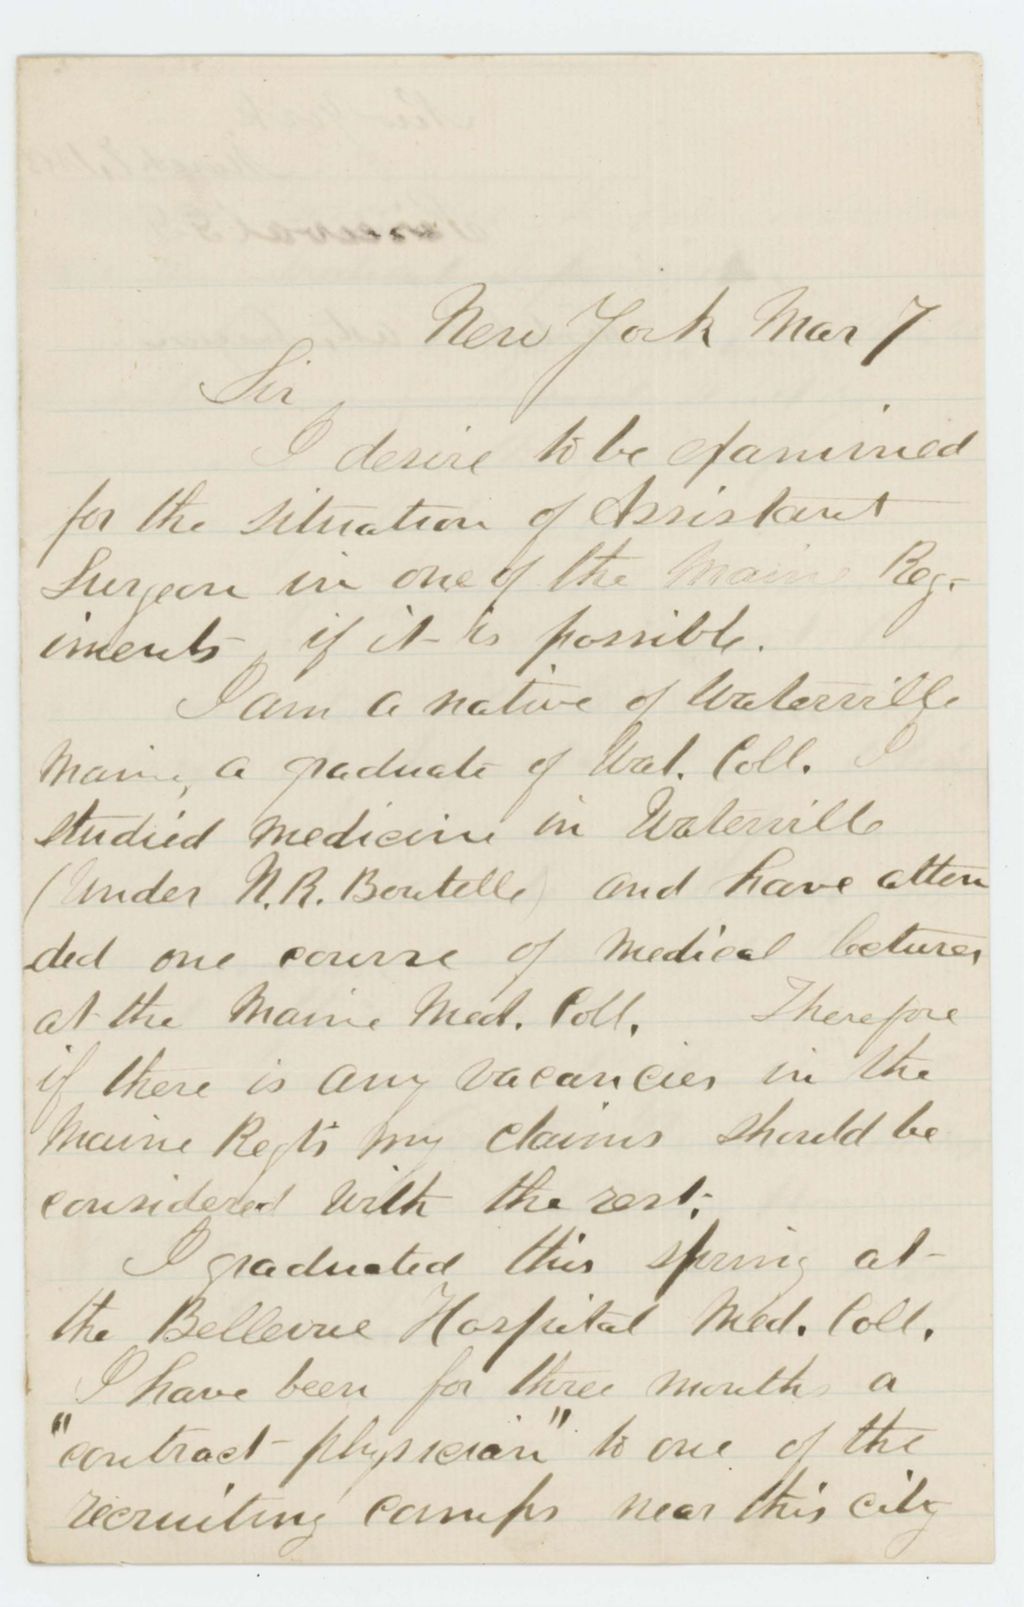 New York Mar 7
Sir
I desire to be examined
for the situation of Assistant
Surgeon in one of the Maine Reg-
iments if it is possible.
I am a native of Waterville
Maine, a graduate of Wat. Coll. I
studied medicine in Waterville
(under N.R. Boutelle) and have atten
ded one course of medical lectures
at the Maine Med. Coll. Therefore
if there is any vacancies in the
Maine Regts my claims should be
considered with the rest.
I graduated this spring at
the Bellevue Hospital Med. Coll.
I have been for three months a
"contract physician" to one of the
recruiting camps near this city